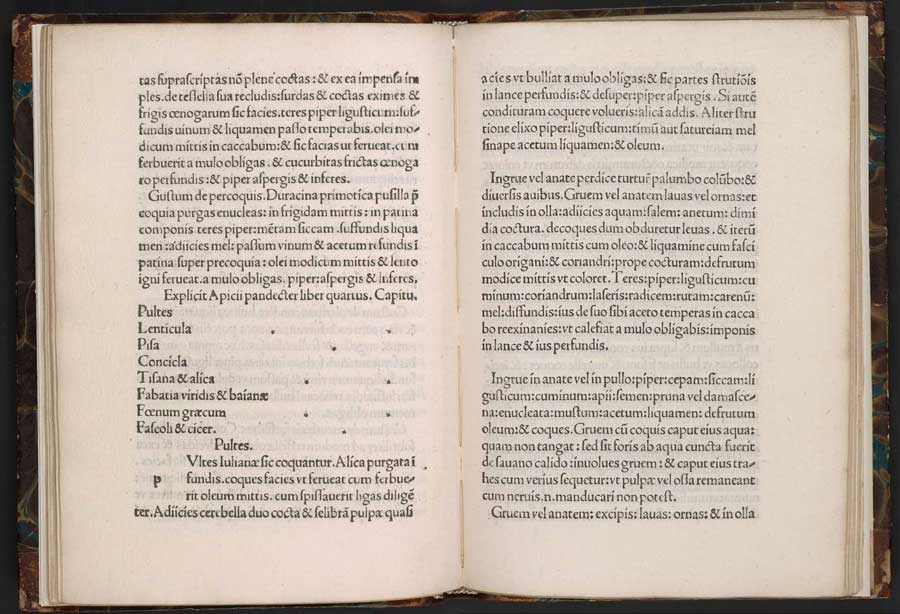 tas suprascriptas nō plene coctas : & ex ea impensa im
ples. de testella sua recludis: surdas & coctas eximes &
frigis œnogarum sic facies. teres piper ligusticum: suf⸗
fundis uinum & liquamen passo temperabis. olei mo⸗
dicum mittis in caccabum: & sic facias ut ferueat. cum
ferbuerit a mulo obligas . & cucurbitas frictas œnoga
ro perfundis : & piper aspergis & inferes.
Gustum de percoquis. Duracina primotica pusilla p̄
coquia purgas enucleas: in frigidam mittis : in patina
componis. teres piper: mētam siccam . suffundis liqua
men : adiicies mel: passum vinum & acetum refundis ī
patina super precoquia : olei modicum mittis & lento
igni ferueat. a mulo obligas. piper: aspergis & inferes.
Explicit Apicii pandecter liber quartus. Capitu.
Pultes
Lenticula
Pisa
Concicla
Tisana & alica
Fabatia viridis & baianæ
Fœnum græcum
Faseoli & cicer.
Pultes.
p Vltes Iulianæ sic coquantur. Alica purgata ī
fundis. coques facies vt ferueat cum ferbue⸗
rit oleum mittis. cum spissauerit ligas diligē
ter. Adiicies cerebella duo cocta & selibrā pulpæ quasi
a cies vt bulliat a mulo obligas: & sic partes strutiōis
in lance perfundis: & desuper: piper aspergis . Si autē
condituram coquere volueris: alicā addis. Aliter stru
tione elixo piper: ligusticum: timū aut satureiam mel
sinape acetum liquamen: & oleum.
Ingrue vel anate perdice turtur̄ palumbo colūbo: &
diuersis auibus. Gruem vel anatem lauas vel ornas: et
includis in olla: adiicies aquam: salem: anetum: dimi
dia coctura. decoques dum obduretur leuas . & iterū
in caccabum mittis cum oleo: & liquamine cum fasci
culo origani: & coriandri: prope cocturam: defrutum
modice mittis vt coloret. Teres: piper: ligusticum: cu
minum: coriandrum: laseris: radicem: rutam: carenū:
mel: diffundis: ius de suo sibi aceto temperas in cacca
bo reexinanies: vt calefiat a mulo obligabis: imponis
in lance & ius perfundis.
Ingrue in anate vel in pullo: piper: cepam: siccam: li
gusticum: cuminum: apii: semen: pruna vel damasce⸗
na: enucleata: mustum: acetum: liquamen: defrutum
oleum: & coques. Gruem cū coquis caput eius aqua:
quam non tangat : sed sit foris ab aqua cuncta fuerit
de sauano calido : inuolues gruem : & caput eius tra⸗
hes cum verius sequetur: vt pulpæ vel ossa remaneant
cum neruis. n. manducari non potest.
Gruem vel anatem: excipis: lauas: ornas: & in olla